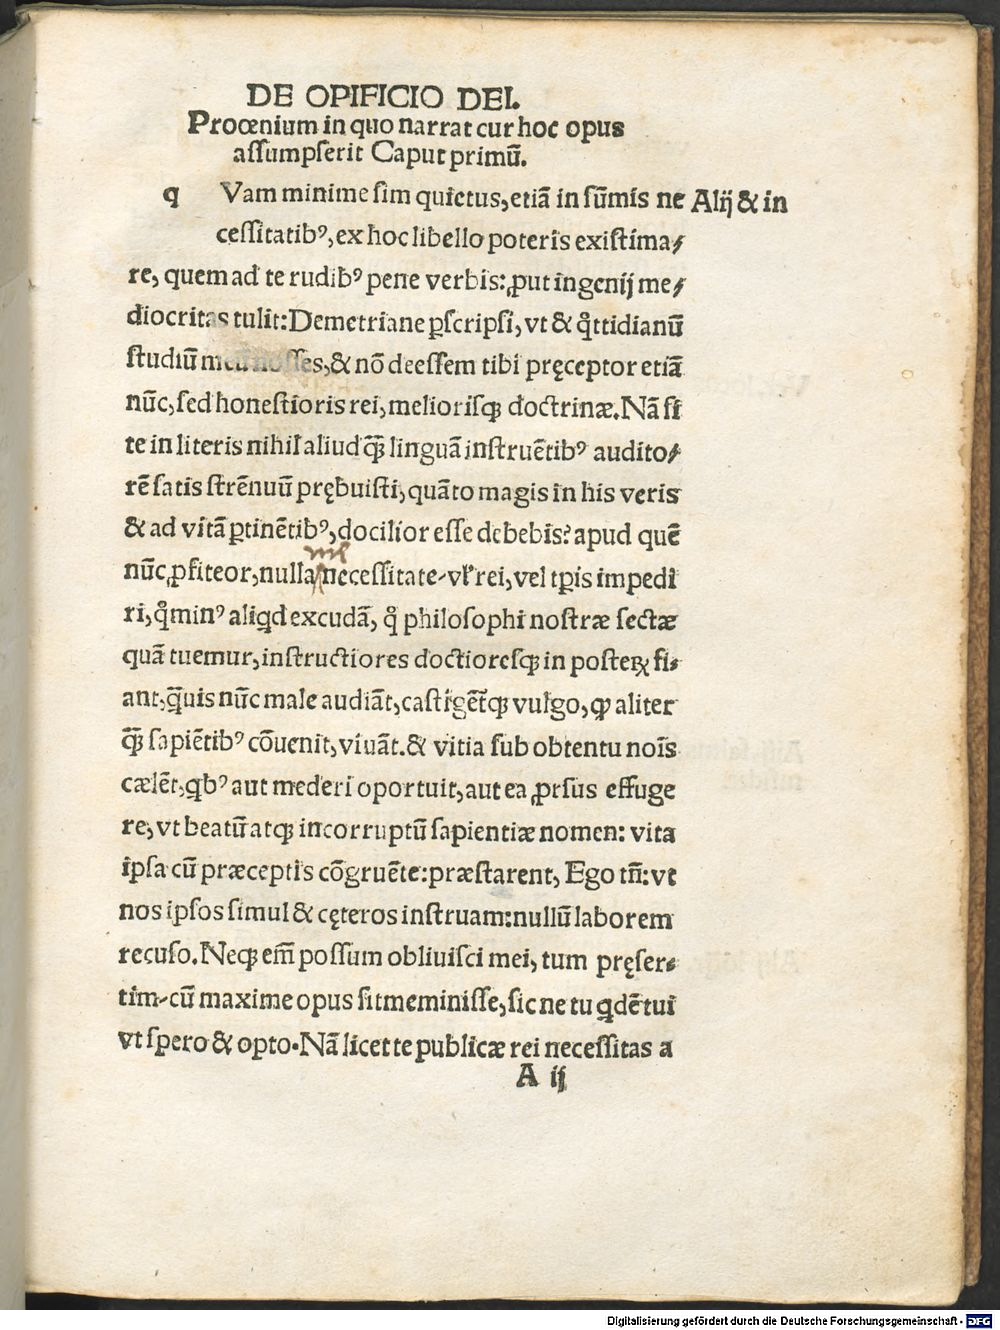 DE OPIFICIO DEI.
Proœnium in quo narrat cur hoc opus
aſſumpſerit Caput primũ.
q Vam minime ſim quietus, etiã in ſũmis ne Alij & in
ceſſitatibꝰ, ex hoc libello poteris exiſtima⸗
re, quem ad te rudibꝰ pene verbis: ꝓut ingenij me⸗
diocritas tulit: Demetriane ꝑſcripſi, vt & q̊ttidianũ
ſtudiũ meũ noſſes, & nõ deeſſem tibi pręceptor etiã
nũc, ſed honeſtioris rei, meliorisꝗ doctrinæ. Nã ſi
te in literis nihil aliud ꝗ̃ linguã inſtruẽtibꝰ audito⸗
rẽ ſatis ſtrẽnuũ pręбuiſti, quãto magis in his veris
& ad vitã ꝑtinẽtibꝰ, docilior eſſe debebis? apud quẽ
nũc ꝓfiteor, nulla me neceſſitate vł rei, vel tꝑis impedi
ri, q̊minꝰ aliꝗd excudã, q̊ philoſophi noſtræ ſectæ
quã tuemur, inſtructiores doctioresꝗ in poſteꝝ fi⸗
ant, ꝗ̃uis nũc male audiãt, caſtigẽtꝗ vulgo, ꝙ aliter
ꝗ̃ ſapiẽtibꝰ cõuenit, viuãt. & vitia ſub obtentu noĩs
cælẽt, ꝗbꝰ aut mederi oportuit, aut ea ꝓrſus effuge
re, vt beatũ atꝗ incorruptũ ſapientiæ nomen: vita
ipſa cũ præceptis cõgruẽte: præſtarent, Ego tñ: vt
nos ipſos ſimul & cęteros inſtruam: nullũ laborem
recuſo. Neꝗ em̃ poſſum obliuiſci mei, tum pręſer⸗
tim cũ maxime opus ſit meminiſſe, ſic ne tu ꝗdẽ tui
vt ſpero & opto. Nã licet te publicæ rei neceſſitas a
A ij
Digitalisierung gefördert durch die Deutsche Forschungsgemeinschaft - DFG